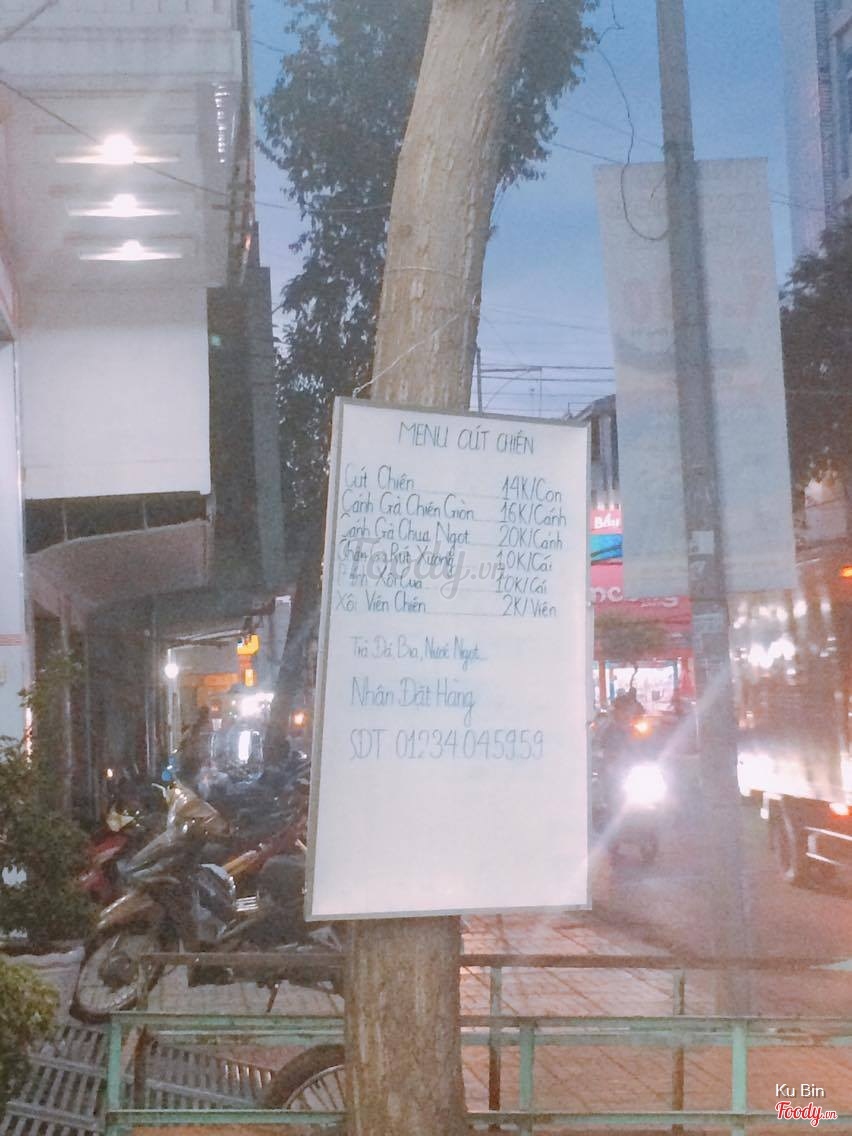 MENU CÚT CHIÊN
Cút Chiên 14K/Con
Cánh Gà Chiên Giòn 16K/Cánh
Cánh Gà Chua Ngọt 20K/Cánh
Chân Gà Rút Xương 10K/Cái
Xôi Cua 10K/Cái
Xôi Viên Chiên 2K/Viên
Trà Đá, Bia, Nước Ngọt...
Nhận Đặt Hàng
SDT 01234.045959
Foody.vn
Ku Bin
Foody.vn